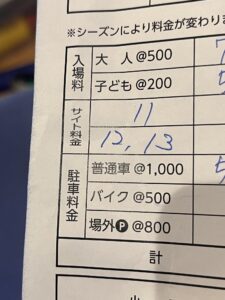 ※シーズンにより料金が変わりま
入場料 大 人 @500
子ども @200
サイト料金 11
12, 13
駐車料金 普通車 @1,000
バイク @500
場外P @800
計